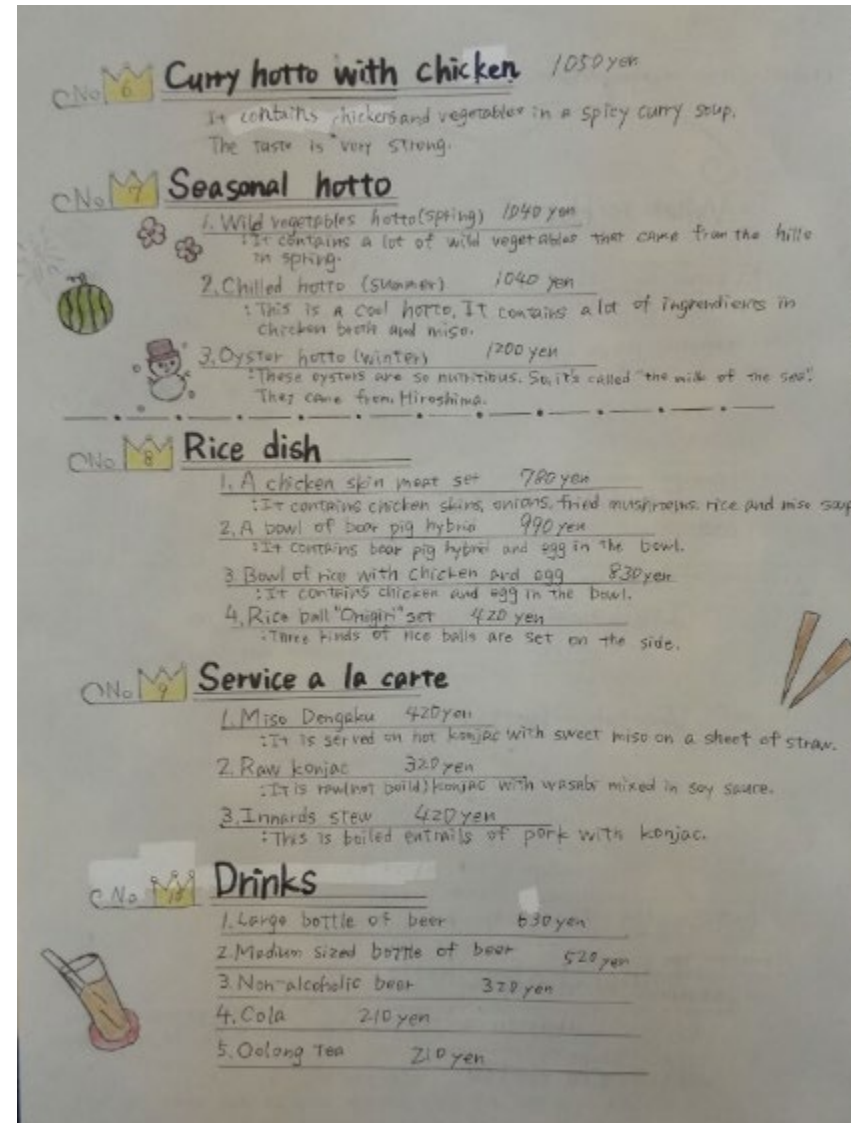 No 6 Curry hotto with chicken 1050 yen
It contains chickens and vegetables in a spicy curry soup.
The taste is very strong.
No 7 Seasonal hotto
1. Wild vegetables hotto (spring) 1040 yen
: It contains a lot of wild vegetables that came from the hills
in spring.
2. Chilled hotto (summer) 1040 yen
: This is a cool hotto. It contains a lot of ingrendients in
chicken broth and miso.
3. Oyster hotto (winter) 1200 yen
: These oysters are so nutritious. So, it's called "the milk of the sea".
They came from Hiroshima.
No 8 Rice dish
1. A chicken skin meat set 780 yen
: It contains chicken skins, onions, fried mushrooms, rice and miso soup
2. A bowl of boar pig hybrid 990 yen
: It contains boar pig hybrid and egg in the bowl.
3. Bowl of rice with chicken and egg 830 yen
: It contains chicken and egg in the bowl.
4. Rice ball "Onigiri" set 420 yen
: Three kinds of rice balls are set on the side.
No 9 Service a la carte
1. Miso Dengaku 420 yen
: It is served on hot konjac with sweet miso on a sheet of straw.
2. Raw konjac 320 yen
: It is raw (not boild) konjac with wasabi mixed in soy sauce.
3. Innards stew 420 yen
: This is boiled entrails of pork with konjac.
No. 10 Drinks
1. Large bottle of beer 630 yen
2. Medium sized bottle of beer 520 yen
3. Non-alcoholic beer 320 yen
4. Cola 210 yen
5. Oolong Tea 210 yen